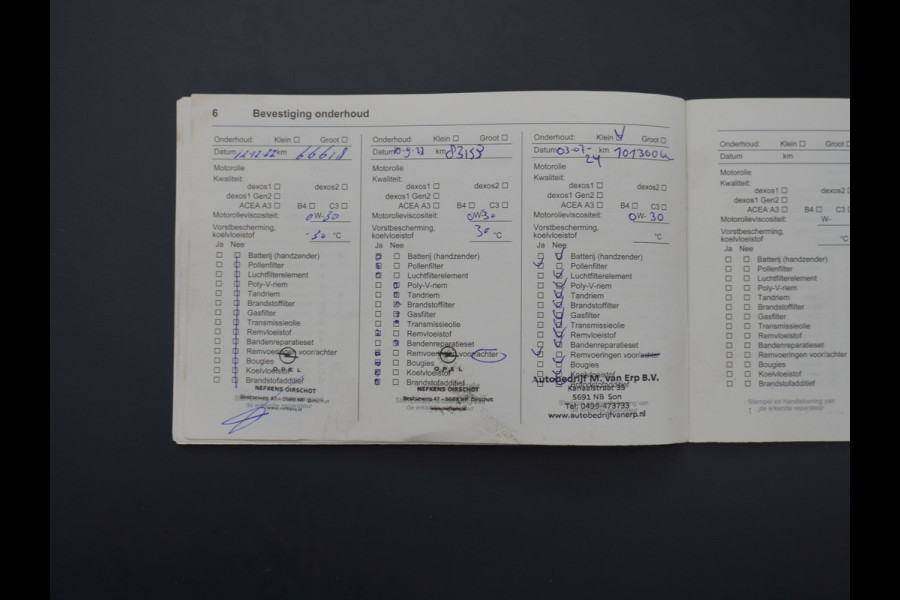 6 Bevestiging onderhoud
Onderhoud: Klein Groot
Datum 12-12-22 km 66618
Motorolie
Kwaliteit:
dexos1 dexos2
dexos1 Gen2
ACEA A3 B4 C3
Motorolieviscositeit: 0W-30
Vorstbescherming,
koelvloeistof -30 °C
Ja Nee
Batterij (handzender)
Pollenfilter
Luchtfilterelement
Poly-V-riem
Tandriem
Brandstoffilter
Gasfilter
Transmissieolie
Remvloeistof
Bandenreparatieset
Remvoeringen voor/achter
Bougies
Koelvloeistof
Brandstofadditief
OPEL
NEFKENS OIRSCHOT
Onderhoud: Klein Groot
Datum km 83153
Motorolie
Kwaliteit:
dexos1 dexos2
dexos1 Gen2
ACEA A3 B4 C3
Motorolieviscositeit: 0W-30
Vorstbescherming,
koelvloeistof 30 °C
Ja Nee
Batterij (handzender)
Pollenfilter
Luchtfilterelement
Poly-V-riem
Tandriem
Brandstoffilter
Gasfilter
Transmissieolie
Remvloeistof
Bandenreparatieset
Remvoeringen voor/achter
Bougies
Koelvloeistof
Brandstofadditief
OPEL
NEFKENS OIRSCHOT
Onderhoud: Klein Groot
Datum 03-07-24 km 101360
Motorolie
Kwaliteit:
dexos1 dexos2
dexos1 Gen2
ACEA A3 B4 C3
Motorolieviscositeit: 0W-30
Vorstbescherming,
koelvloeistof °C
Ja Nee
Batterij (handzender)
Pollenfilter
Luchtfilterelement
Poly-V-riem
Tandriem
Brandstoffilter
Gasfilter
Transmissieolie
Remvloeistof
Bandenreparatieset
Remvoeringen voor/achter
Bougies
Koelvloeistof
Autobedrijf M. van Erp B.V.
Kanaalstraat 35
5691 NB Son
Tel: 0499-473733
www.autobedrijfvanerp.nl
Onderhoud: Klein Groot
Datum km
Motorolie
Kwaliteit:
dexos1 dexos2
dexos1 Gen2
ACEA A3 B4 C3
Motorolieviscositeit: W-
Vorstbescherming,
koelvloeistof °C
Ja Nee
Batterij (handzender)
Pollenfilter
Luchtfilterelement
Poly-V-riem
Tandriem
Brandstoffilter
Gasfilter
Transmissieolie
Remvloeistof
Bandenreparatieset
Remvoeringen voor/achter
Bougies
Koelvloeistof
Brandstofadditief
Stempel en handtekening van
de erkende reparateur